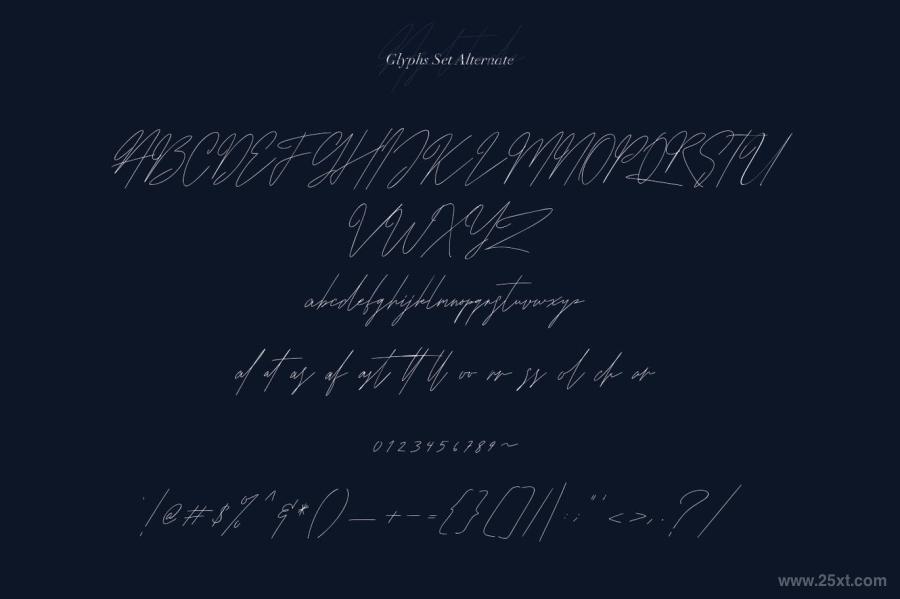 Glyphs Set Alternate
ABCDEFGHIJKLMNOPQRSTU
VWXYZ
abcdefghijklmnopqrstuvwxyz
al at as af ast tt ll oo rr ss ol ch or
0123456789~
`!@#$%^&*()_+-={}[]\|:;"'<>,.?/
www.25xt.com